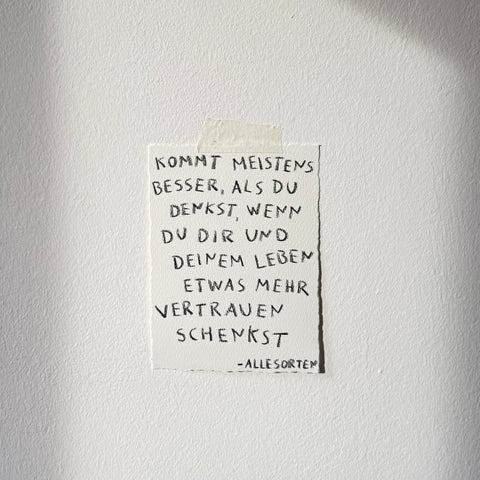 KOMMT MEISTENS
BESSER, ALS DU
DENKST, WENN
DU DIR UND
DEINEM LEBEN
ETWAS MEHR
VERTRAUEN
SCHENKST
-ALLESORTEN